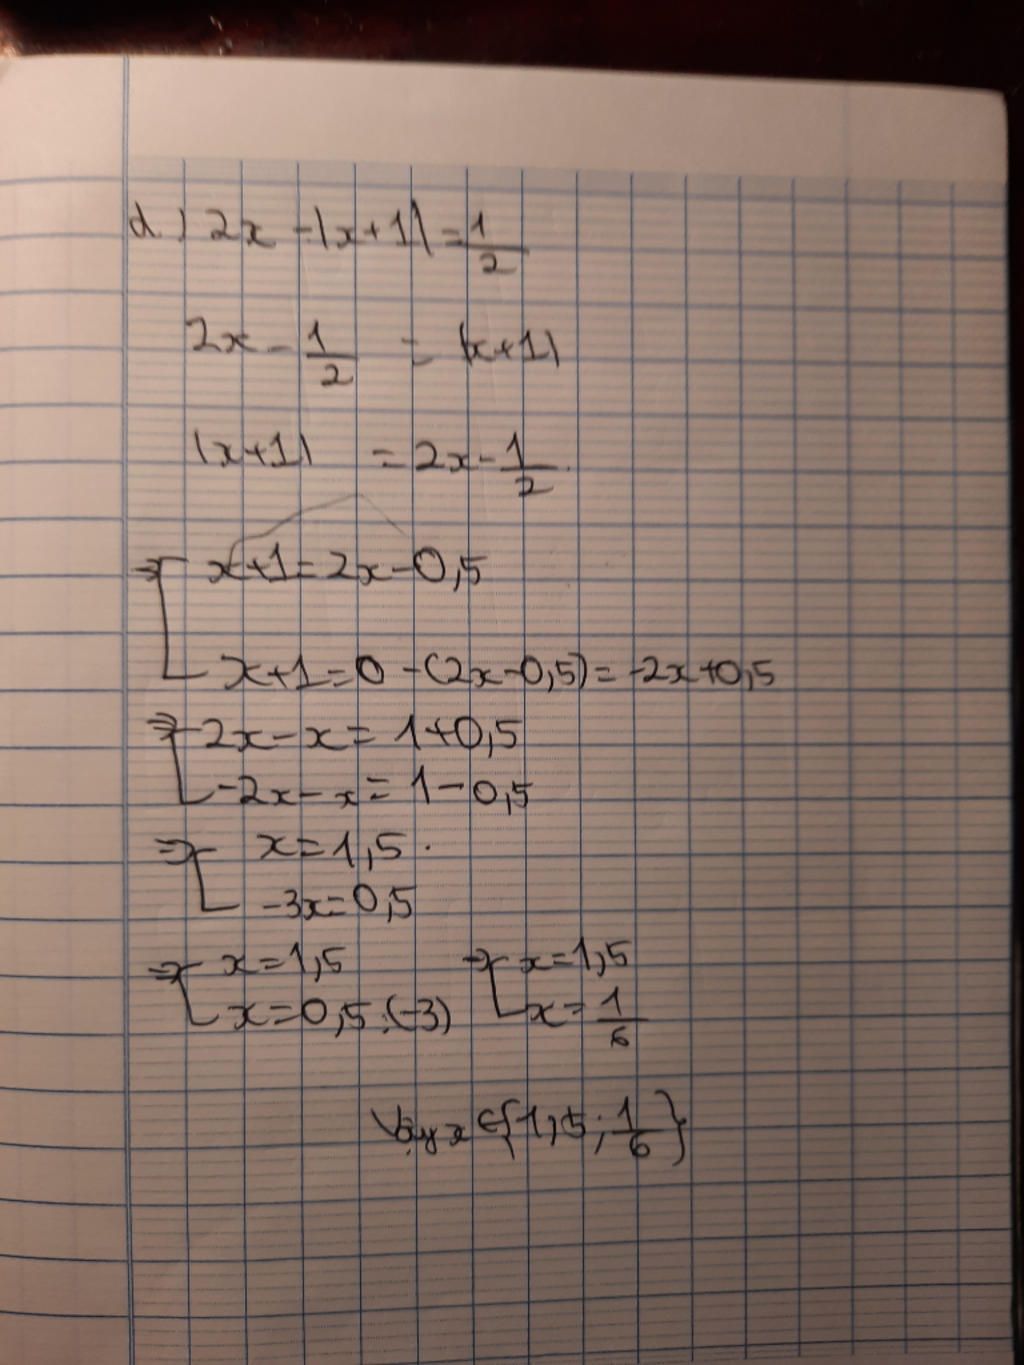 d) 2x - |x+1| = 1/2
2x - 1/2 = |x+1|
|x+1| = 2x - 1/2
⇒ [ x+1 = 2x - 0,5
x+1 = 0 - (2x - 0,5) = -2x + 0,5
⇒ [ 2x - x = 1 + 0,5
-2x - x = 1 - 0,5
⇒ [ x = 1,5.
-3x = 0,5
⇒ [ x = 1,5 ⇒ [ x = 1,5
x = 0,5 : (-3) x = 1/6
Vậy x ∈ {1,5 ; 1/6}